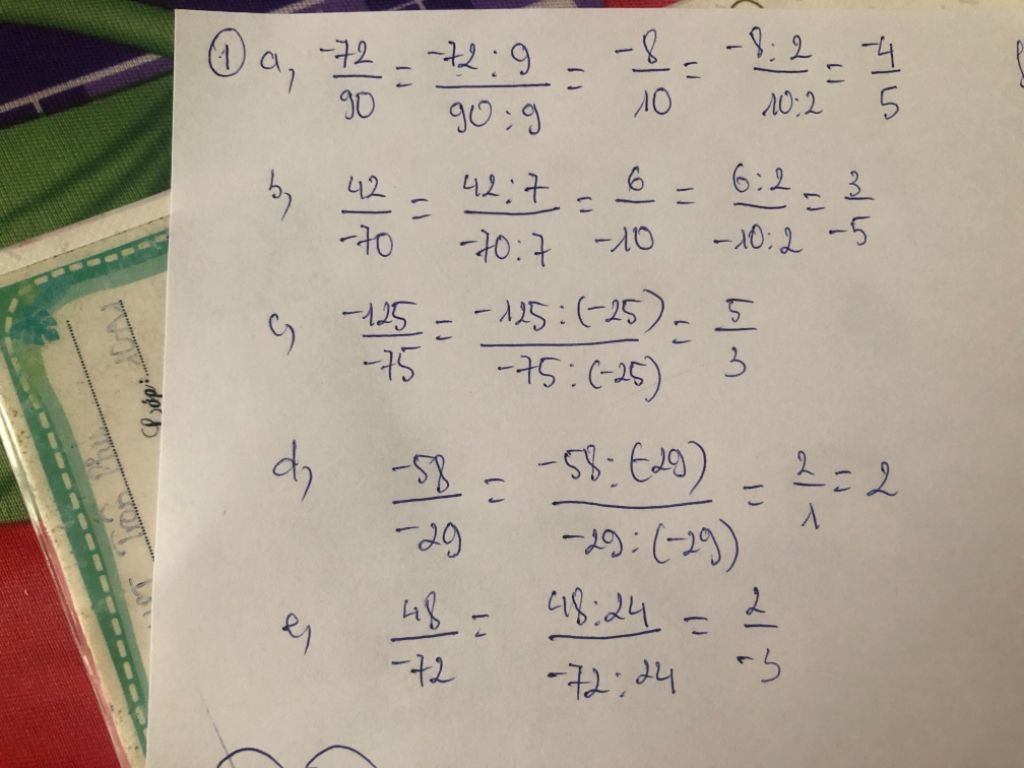 ① a, -72/90 = -72:9/90:9 = -8/10 = -8:2/10:2 = -4/5
b, 42/-70 = 42:7/-70:7 = 6/-10 = 6:2/-10:2 = 3/-5
c, -125/-75 = -125:(-25)/-75:(-25) = 5/3
d, -58/-29 = -58:(-29)/-29:(-29) = 2/1 = 2
e, 48/-72 = 48:24/-72:24 = 2/-3